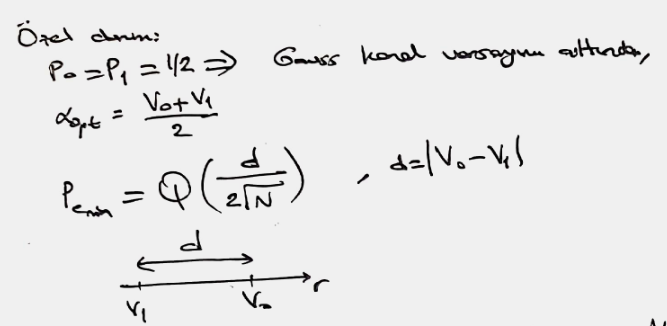 Özel durum:
P₀ = P₁ = 1/2 ⇒ Gauss kanal varsayımı altında,
α_opt = (V₀+V₁)/2
P_e_min = Q(d/(2√N)), d=|V₀-V₁|
d
V₁ V₀ r